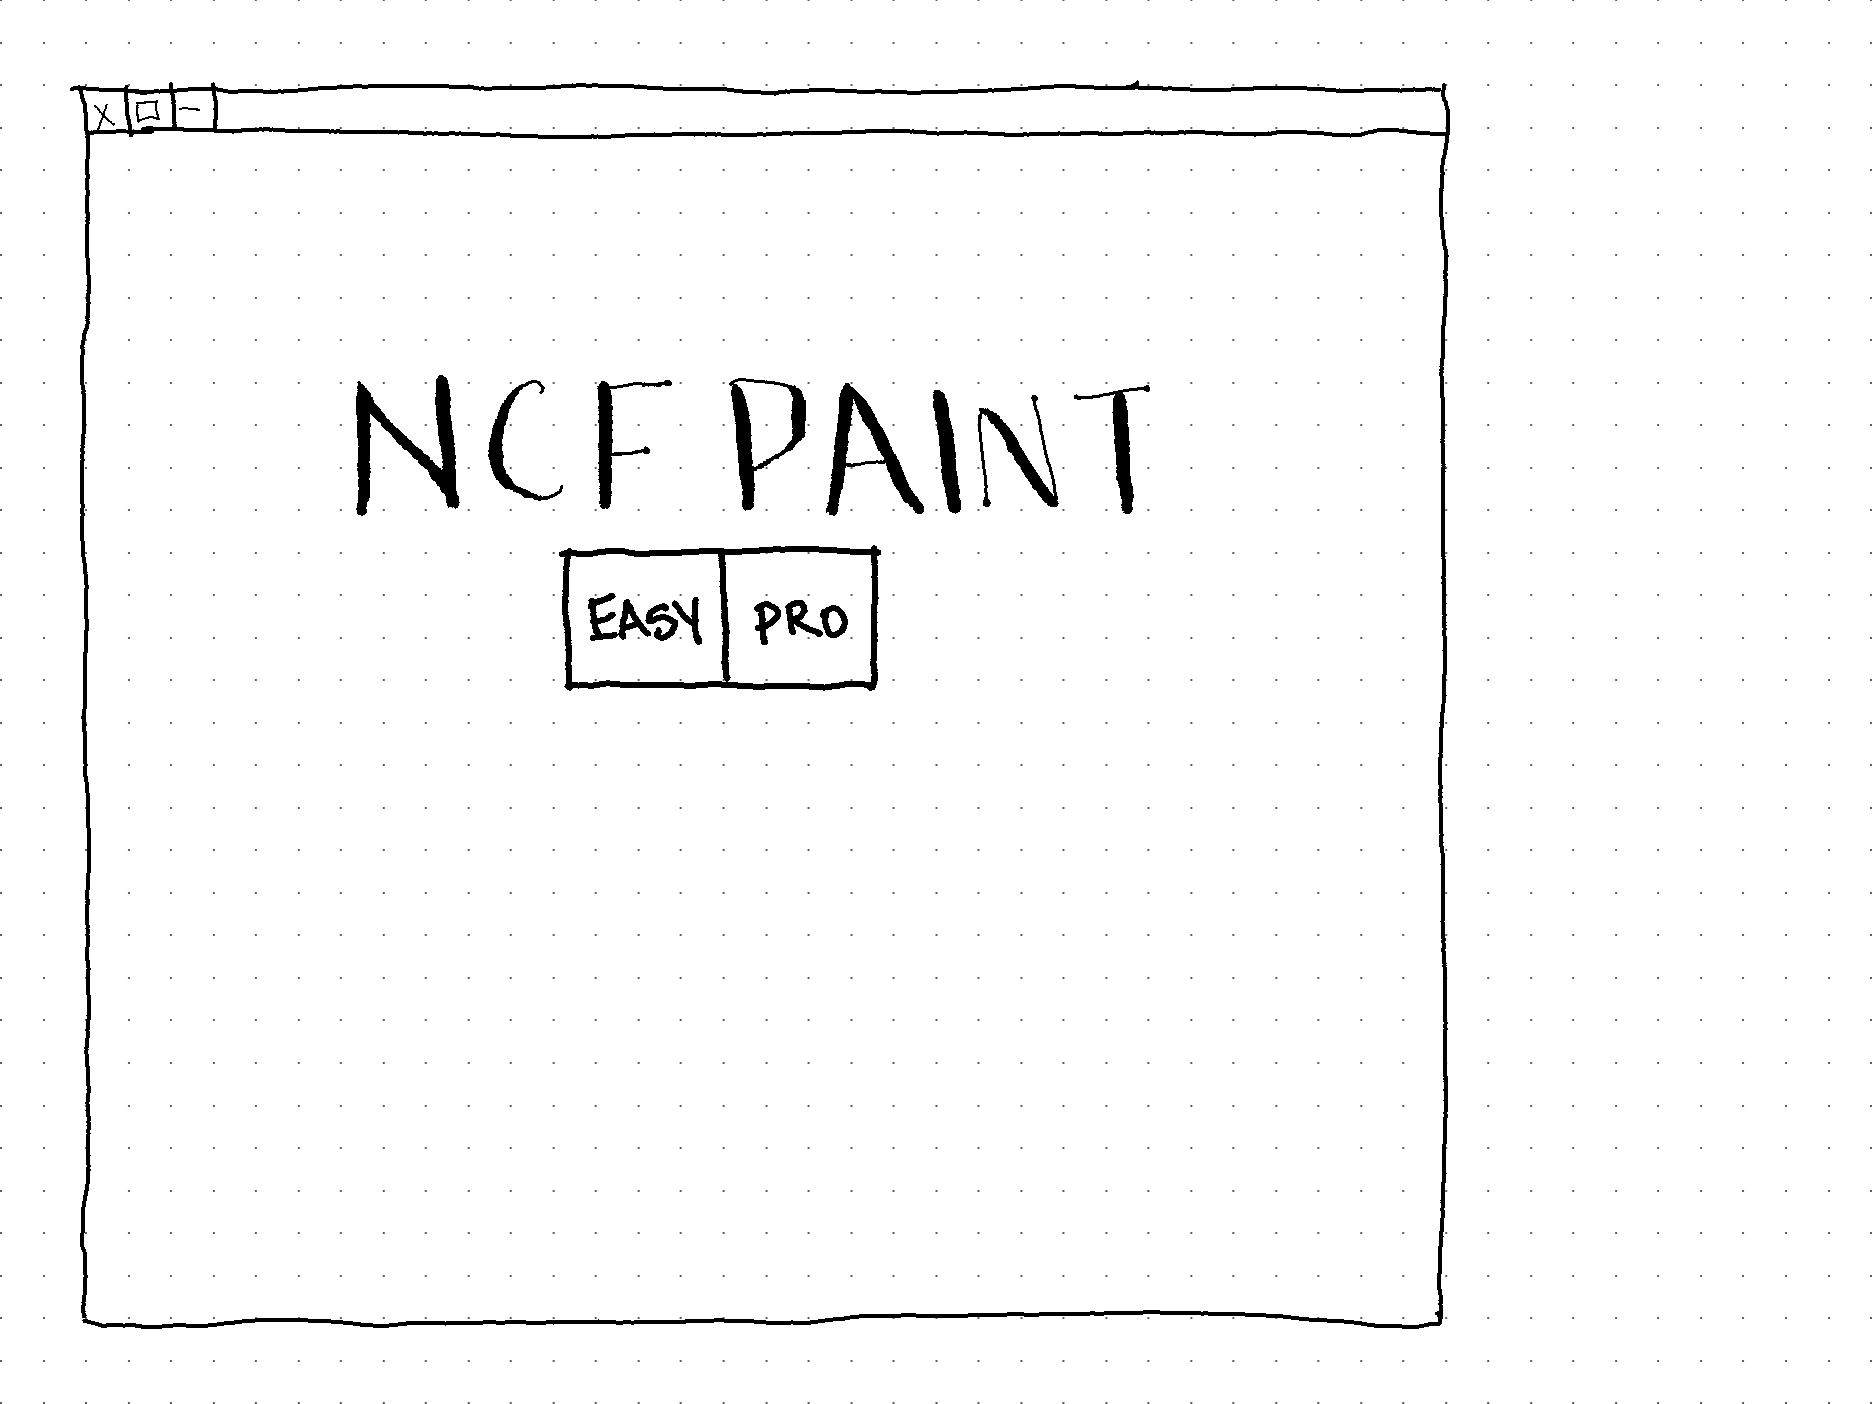 X
NCF PAINT
EASY PRO